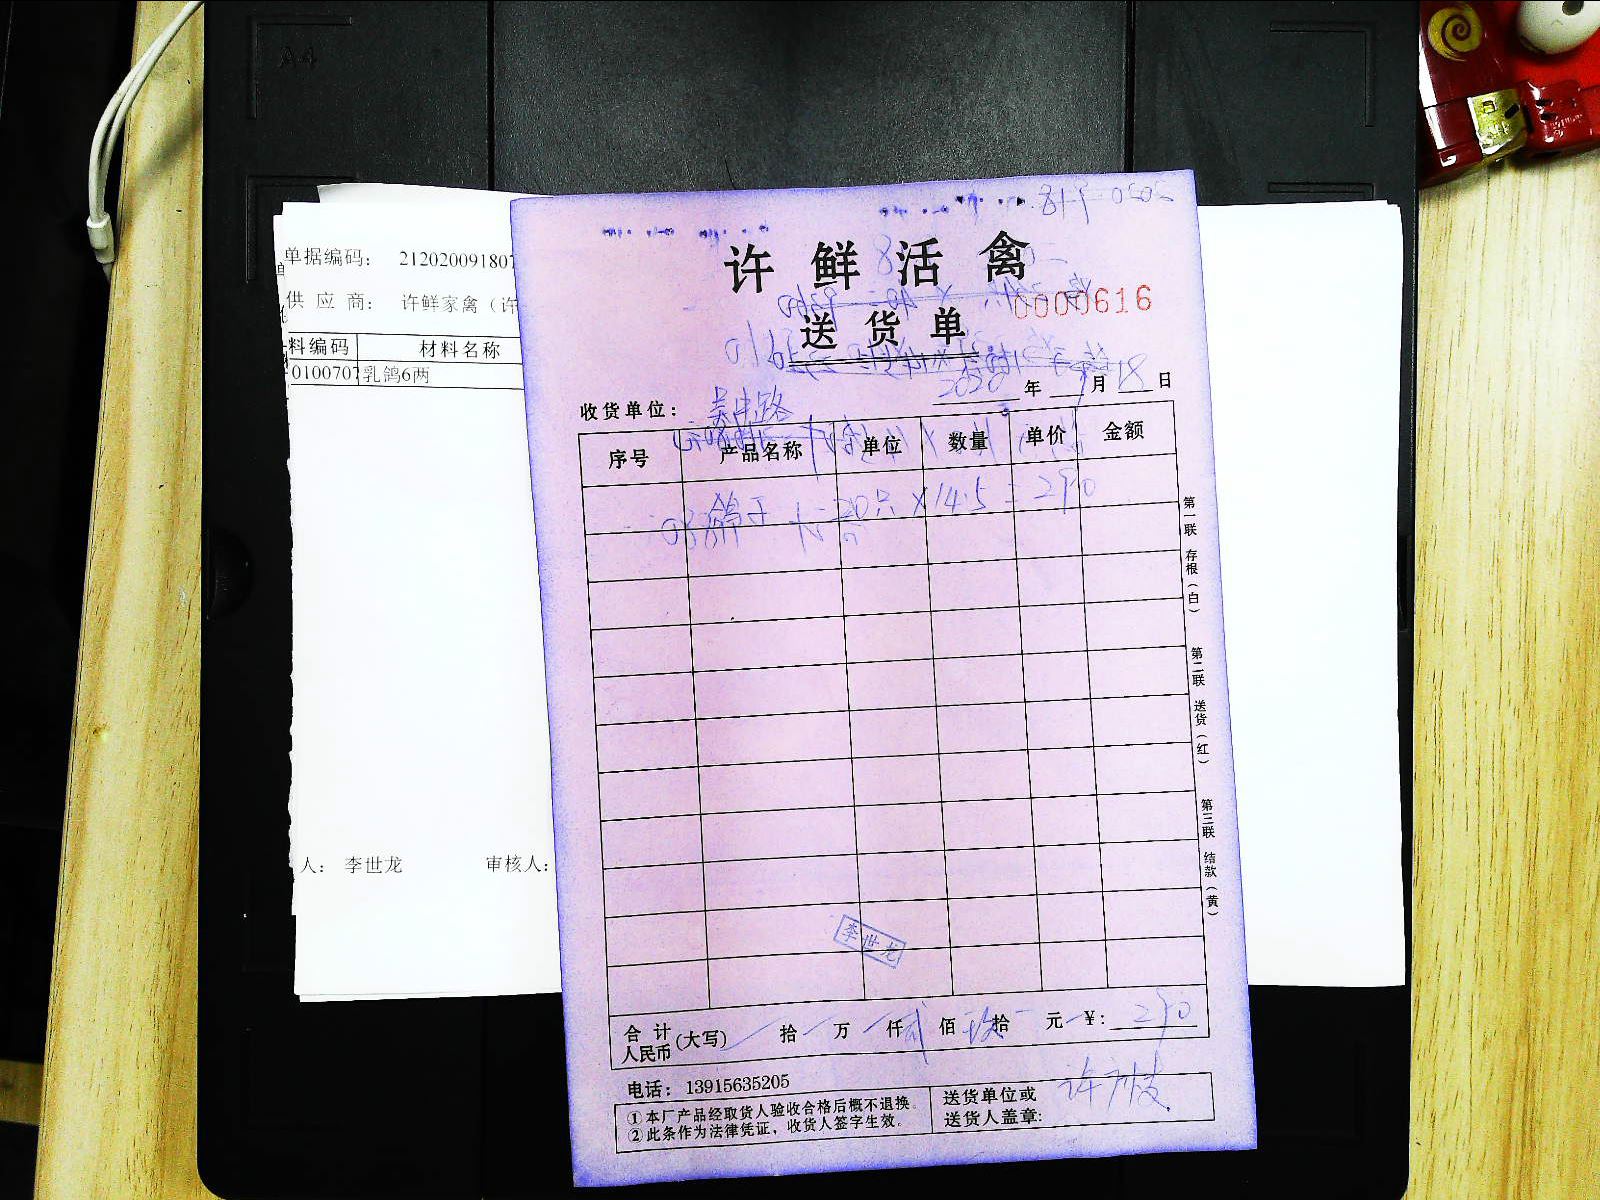 A4
单据编码： 21202009180
供 应 商： 许鲜家禽（许
料编码 材料名称
010070 乳鸽6两
人： 李世龙 审核人：
许鲜活禽
0000616
送货单
2020 年 9 月 18 日
收货单位： 吴中路
序号 产品名称 单位 数量 单价 金额
鸽子 20只 X 14.5 = 290
第一联 存根（白） 第二联 送货（红） 第三联 结款（黄）
李世龙
合计人民币(大写) 拾 万 仟 贰 佰 玖 拾 元 ¥: 290
电话： 13915635205
①本厂产品经取货人验收合格后概不退换。
②此条作为法律凭证，收货人签字生效。
送货单位或
送货人盖章: